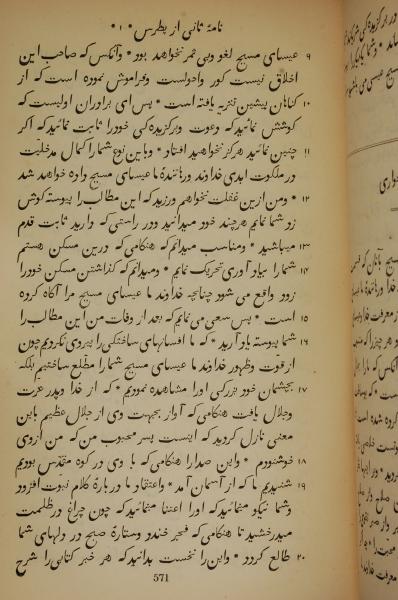 نامهٔ ثانی از پطرس * ۱ *
عیسای مسیح لغو وبی ثمر نخواهد بود * وآنکس که صاحب این ۹
اخلاق نیست کور واحولست وفراموش نموده است که از
کناهان پیشین تنزیه یافته است * پس ای برادران اولیست که ۱۰
کوشش نمائید که دعوت وبرکزیده‌کی خودرا ثابت نمائید که اکر
چنین نمائید هرکز نخواهید افتاد * وباین نوع شمارا کمال مدخلیت ۱۱
در ملکوت ابدی خداوند ورهانندهٔ ما عیسای مسیح داده خواهد شد
* ومن ازین غفلت نخواهم ورزید که این مطالب را پیوسته کوش ۱۲
زد شما نمایم هرچند خود میدانید ودر راستی که دارید ثابت قدم
میباشید * ومناسب میدانم که هنکامی که درین مسکن هستم ۱۳
شمارا بیاد آوری تحریک نمایم * ومیدانم که کذاشتن مسکن خودرا ۱۴
زود واقع می شود چنانچه خداوند ما عیسای مسیح مرا آکاه کرده
است * پس سعی می نمایم که بعد از وفات من این مطالب را ۱۵
شما پیوسته یاد آرید * که ما افسانهای ساختکی را پیروی نکردیم چون ۱۶
از قوت وظهور خداوند ما عیسای مسیح شمارا مطلع ساختیم بلکه
بچشمان خود بزرکی اورا مشاهده نمودیم * که از خدا وپدر عزت ۱۷
وجلال یافت هنکامی که آواز بجهت وی از جلال عظیم باین
معنی نازل کردید که اینست پسر محبوب من که من ازوی
خوشنودم * واین صدارا هنکامی که با وی در کوه مقدس بودیم ۱۸
شنیدیم که از آسمان آمد * واعتقاد ما در بارهٔ کلام نبوت افزود ۱۹
وشما نیکو مینمائید که اورا اعتنا مینمائید که چون چراغ در ظلمت
میدرخشید تا هنکامی که فجر خندد وستارهٔ صبح در دلهای شما
طالع کردد * واین را نخست بدانید که هر خبر کتابی را شرح ۲۰
571